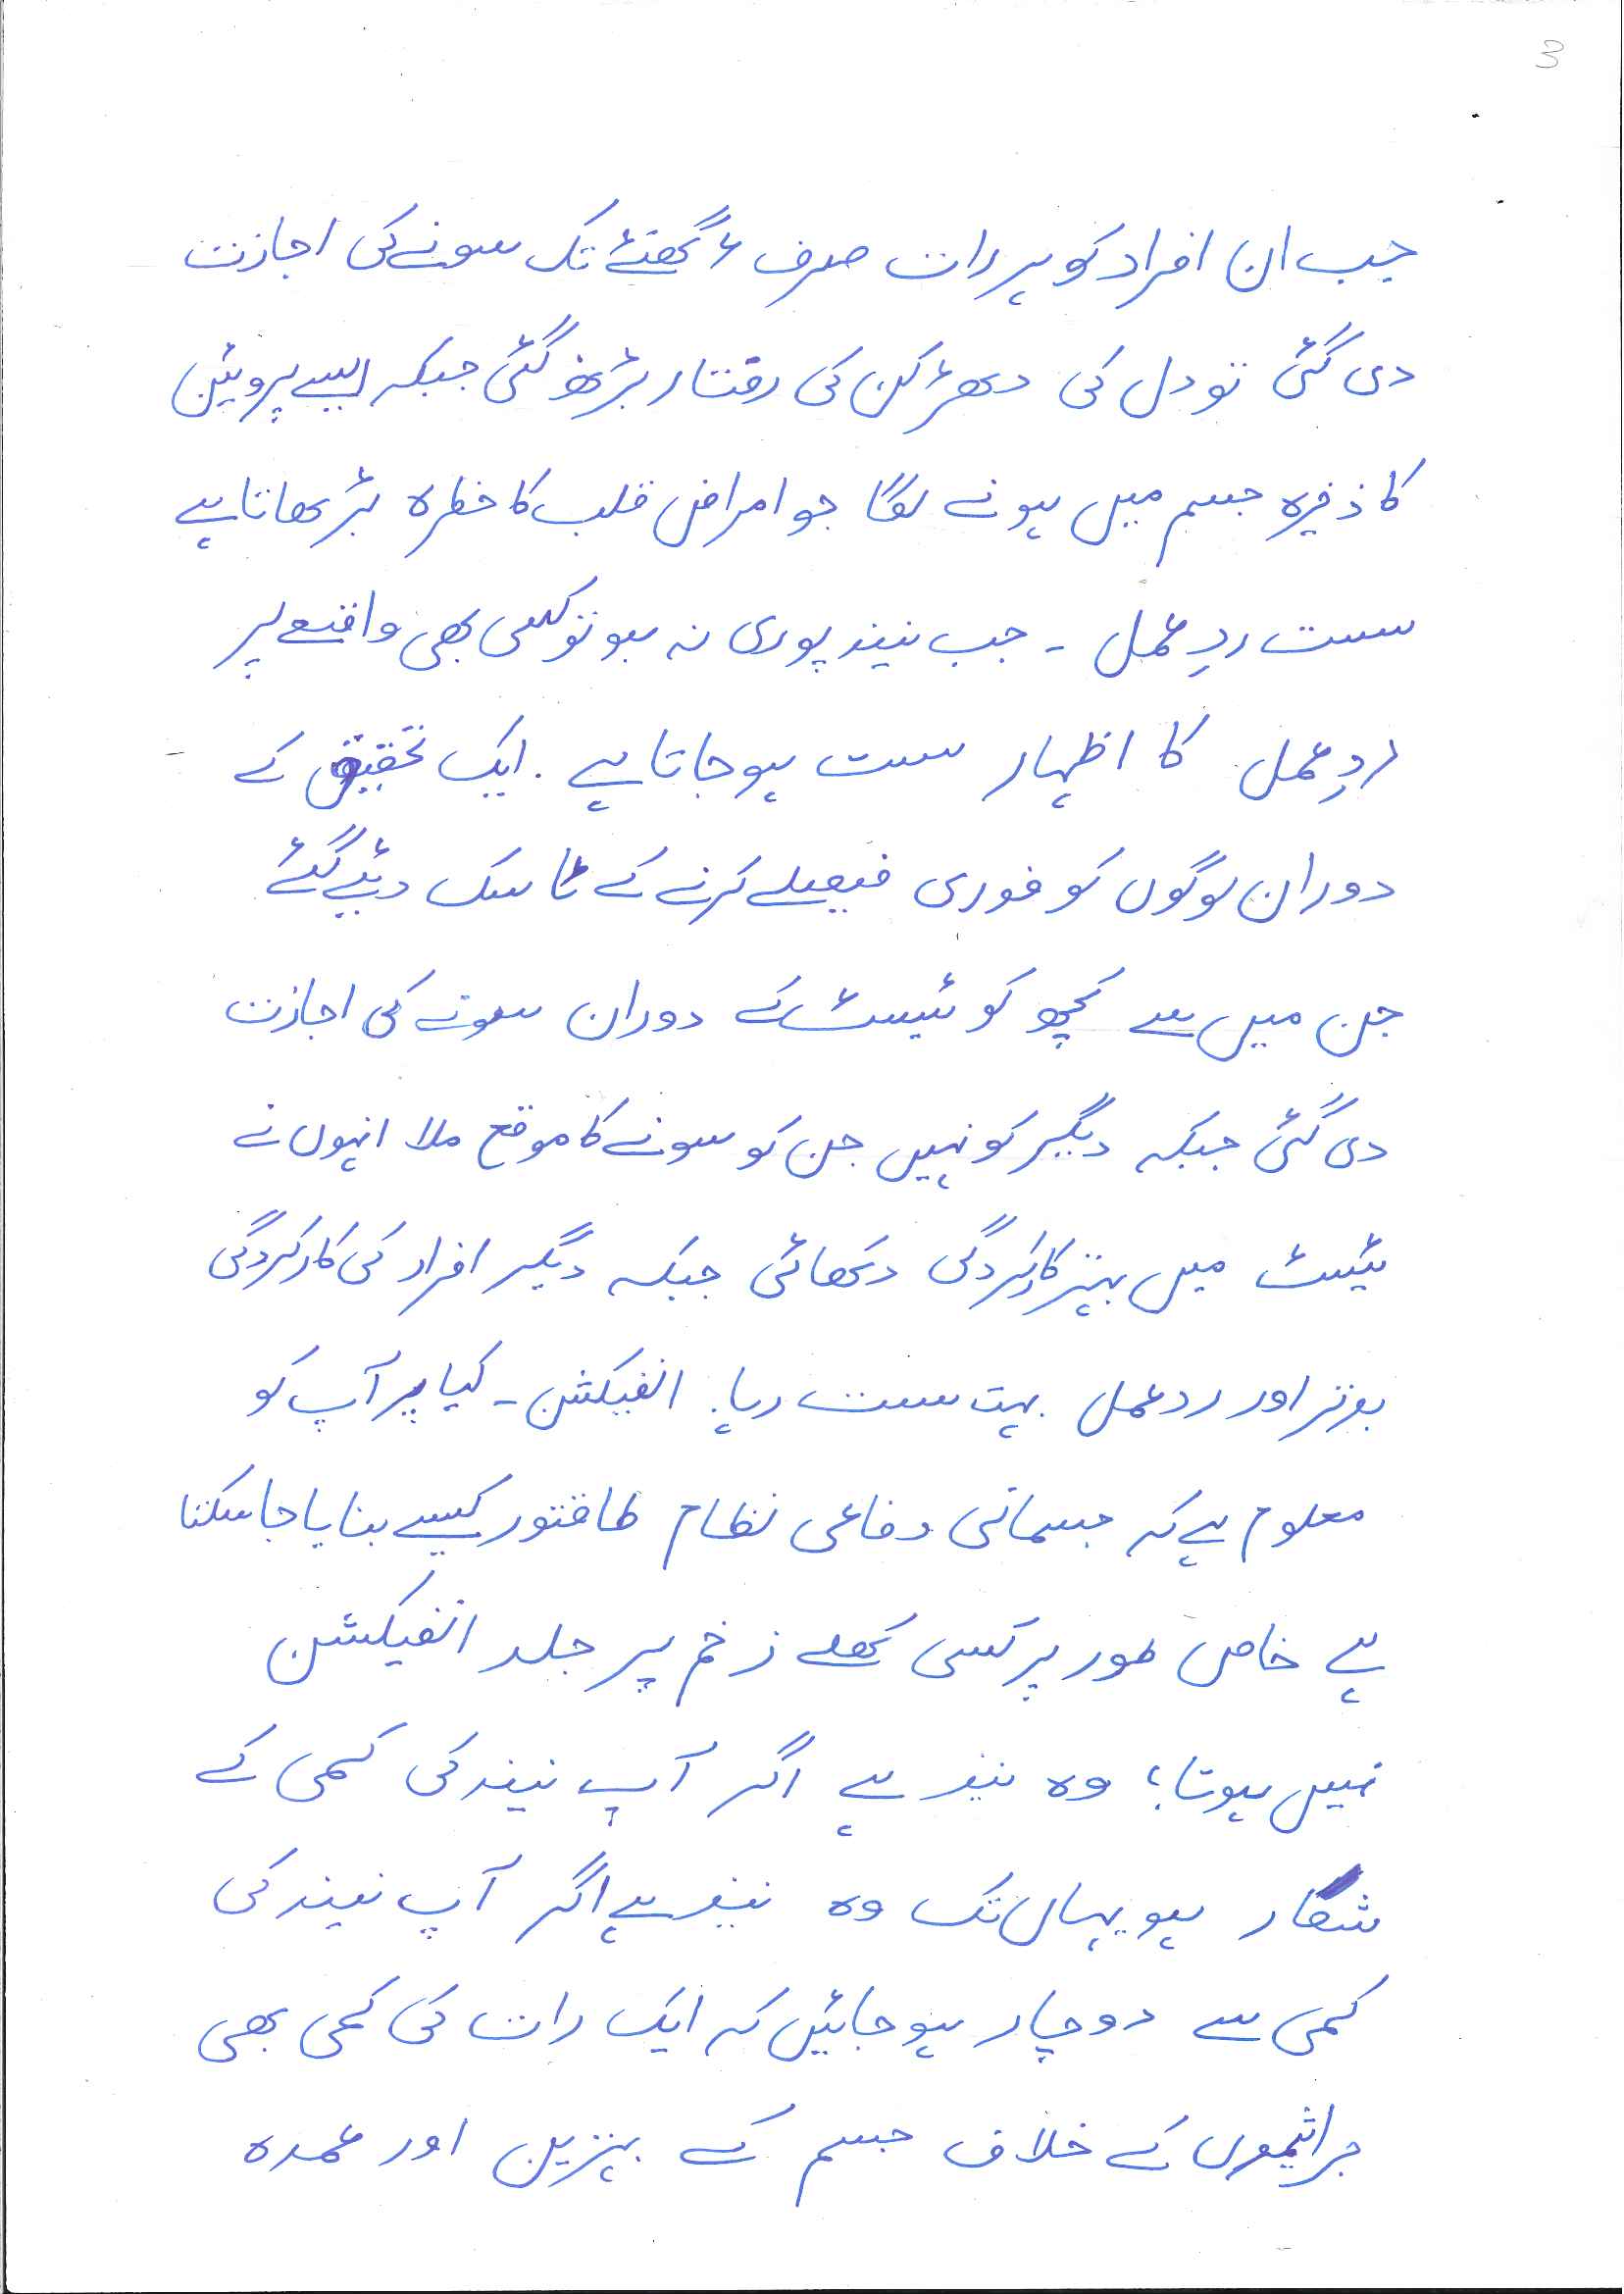 3
جب ان افراد کو ہر رات صرف ۴ گھنٹے تک سونے کی اجازت
دی گئی تو دل کی دھڑکن کی رفتار بڑھ گئی جبکہ ایسے پروٹین
کا ذخیرہ جسم میں ہونے لگا جو امراض قلب کا خطرہ بڑھاتا ہے
سست ردِ عمل - جب نیند پوری نہ ہو تو کسی بھی واقعے پر
ردِ عمل کا اظہار سست ہو جاتا ہے . ایک تحقیق کے
دوران لوگوں کو فوری فیصلے کرنے کے ٹاسک دیئے گئے
جن میں سے کچھ کو ٹیسٹ کے دوران سونے کی اجازت
دی گئی جبکہ دیگر کو نہیں جن کو سونے کا موقع ملا انہوں نے
ٹیسٹ میں بہتر کارکردگی دکھائی جبکہ دیگر افراد کی کارکردگی
بدتر اور ردعمل بہت سست رہا. انفیکشن - کیا پر آپ کو
معلوم ہے کہ جسمانی دفاعی نظام طاقتور کیسے بنایا جاسکتا
ہے خاص طور پر کسی کھلے زخم پر جلد انفیکشن
نہیں ہوتا؛ وہ نیند ہے اگر آپ نیند کی کمی کے
شکار ہو یہاں تک وہ نیند ہے اگر آپ نیند کی
کمی سے دوچار ہو جائیں کہ ایک رات کی کمی بھی
جراثیموں کے خلاف جسم کے بہترین اور عمدہ